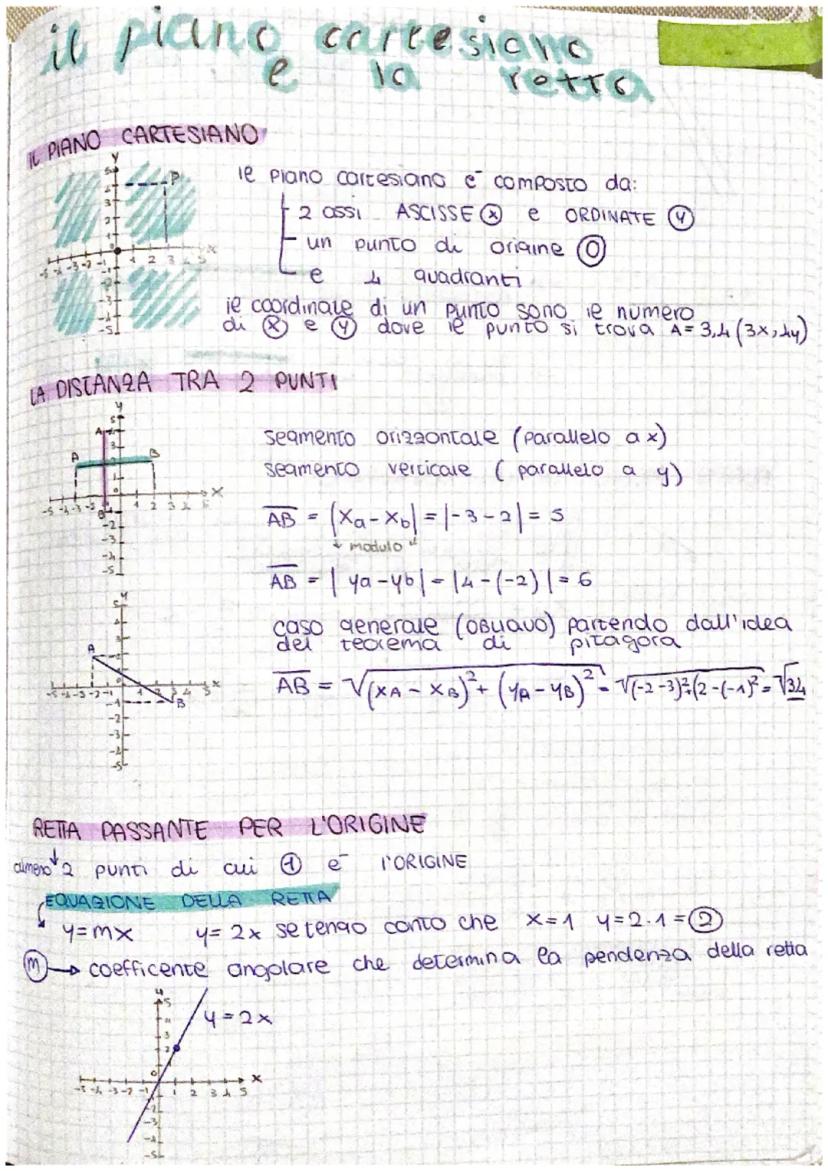 il piano cartesiano
e la retta
IL PIANO CARTESIANO
il piano cartesiano è composto da:
2 assi ASCISSE (x) e ORDINATE (y)
un punto di origine (O)
e 4 quadranti
le coordinate di un punto sono il numero
di (x) e (y) dove il punto si trova A = 3,4 (3x, 4y)
LA DISTANZA TRA 2 PUNTI
segmento orizzontale (parallelo a x)
segmento verticale (parallelo a y)
AB = |Xa - Xb| = |-3-2| = 5
modulo
AB = |ya-yb| = |4-(-2)| = 6
caso generale (obliquo) partendo dall'idea
del teorema di pitagora
AB = √(xA - xB)² + (yA - yB)² = √(-2-3)²+(2-(-1)² = √34
RETTA PASSANTE PER L'ORIGINE
almeno 2 punti di cui (1) è l'ORIGINE
EQUAZIONE DELLA RETTA
y=mx y=2x se tengo conto che x=1 y=2·1=(2)
(m) → coefficente angolare che determina la pendenza della retta
y=2x